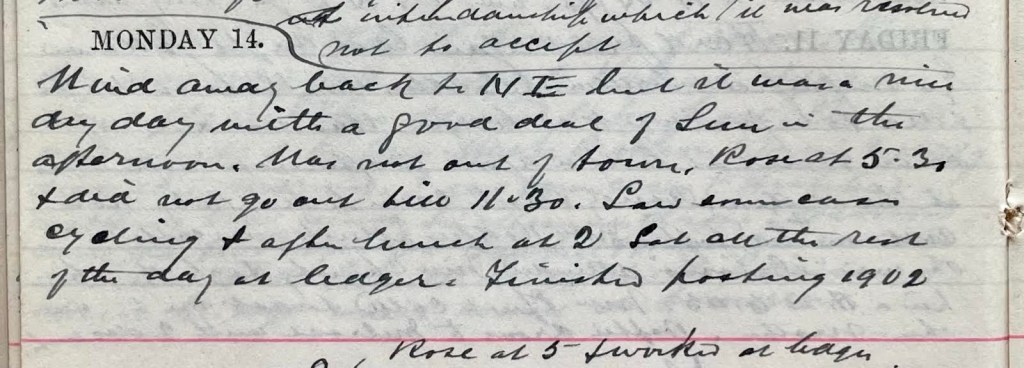 intendantship which it was resolved
MONDAY 14. not to accept
Wind away back to NE but it was a nice
dry day with a good deal of Sun in the
afternoon. Was not out of town. Rose at 5.30
& did not go out till 11.30. Saw some cases
cycling & after lunch at 2 Sat all the rest
of the day at ledger. Finished posting 1902
Rose at 5 & worked at ledger